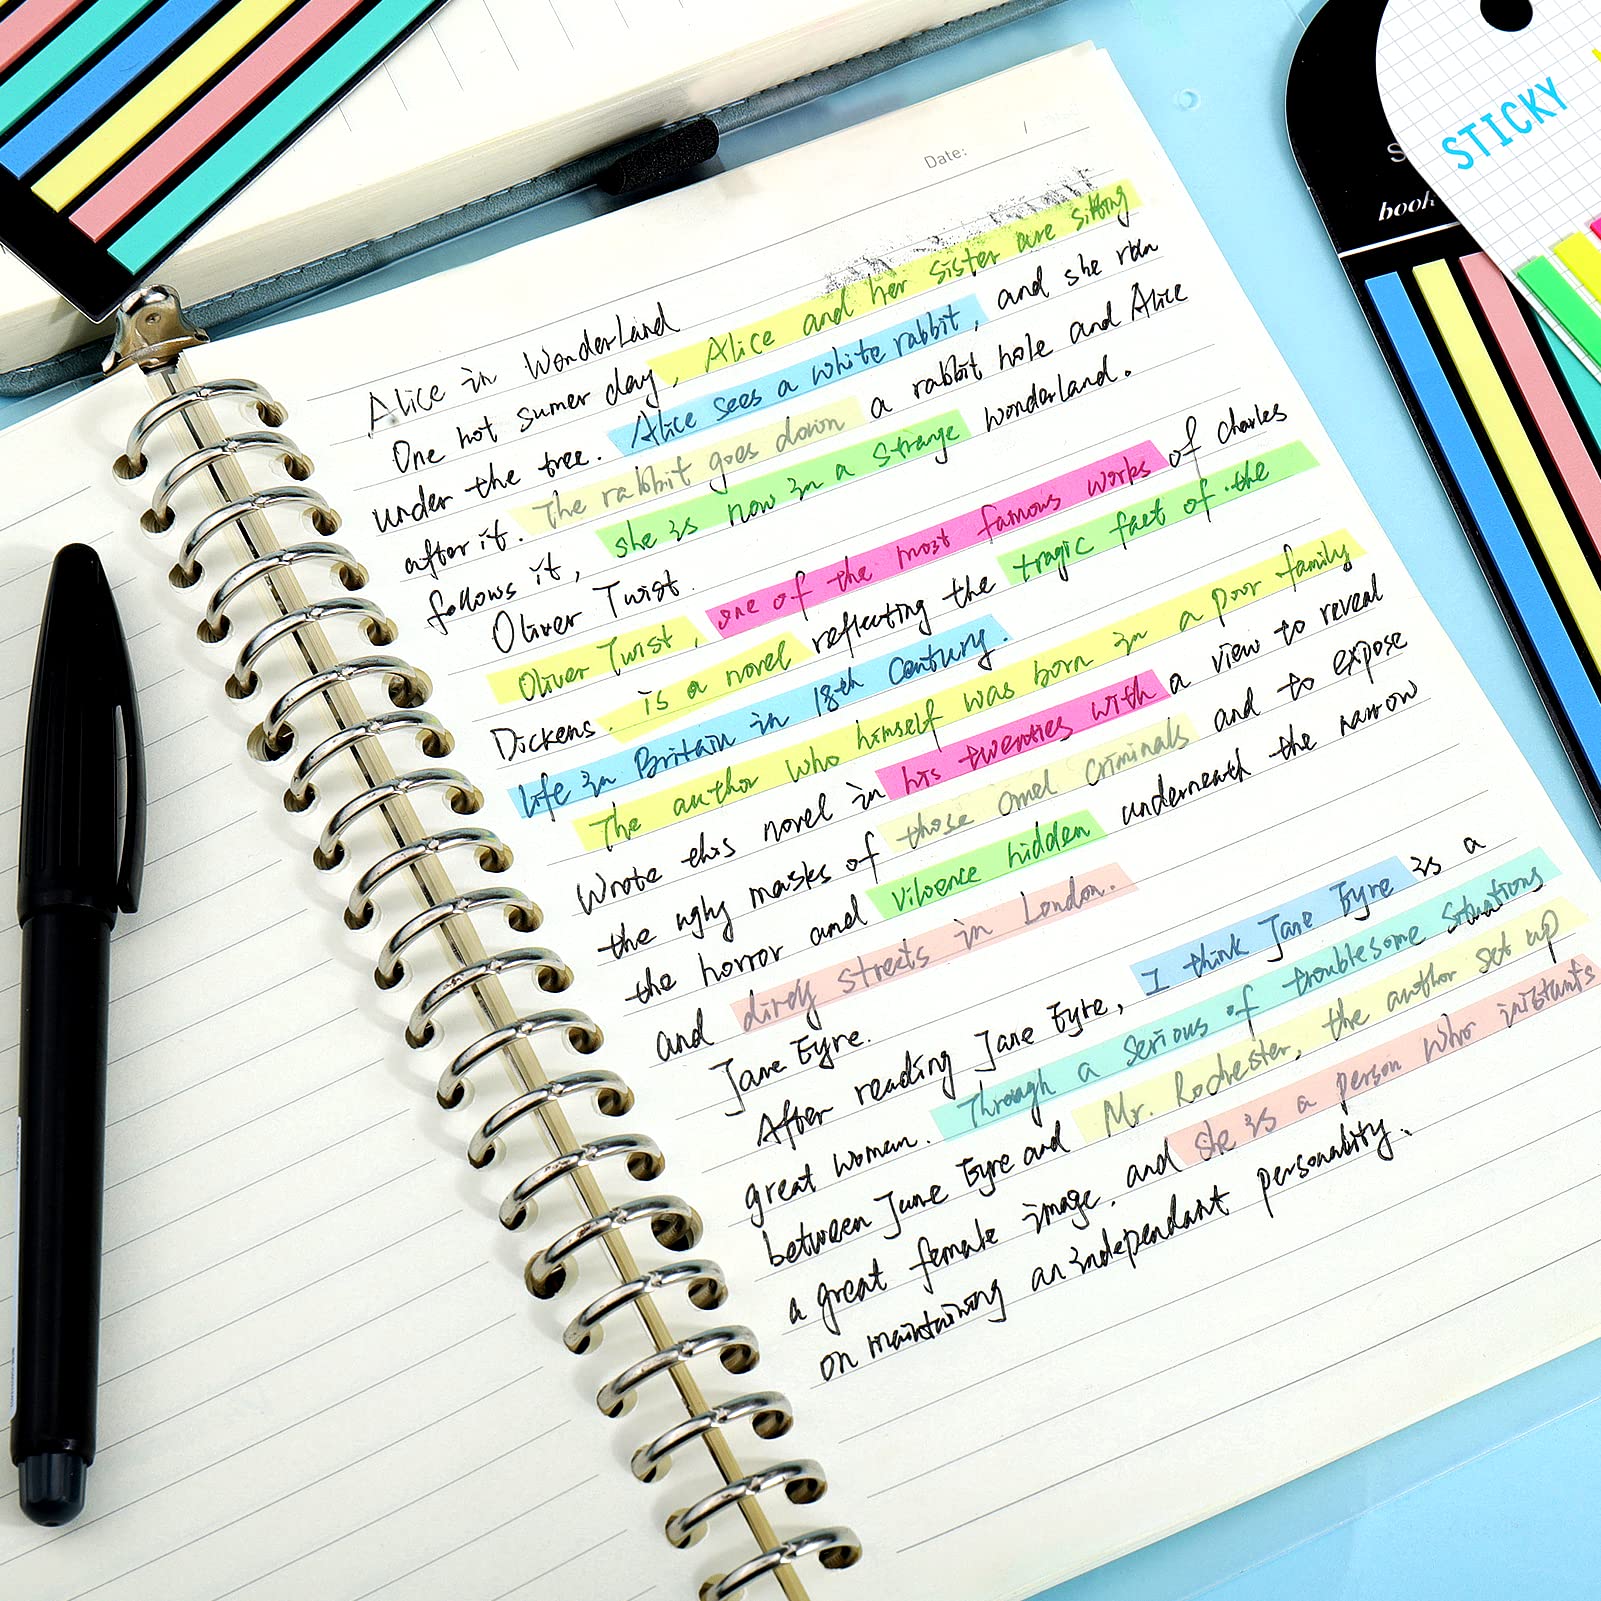 Date:
Alice in WonderLand
One hot sumer day, Alice and her sister are sitting
under the tree. Alice sees a white rabbit, and she ran
after it. The rabbit goes down a rabbit hole and Alice
follows it, she is now in a strange wonderland.
Oliver Twist.
Oliver Twist, one of the most famous works of charles
Dickens. is a novel reflecting the tragic fact of the
life in Britain in 18th Century.
The author who himself was born in a poor family
Wrote this novel in his twenties with a view to reveal
the ugly masks of those and criminals and to expose
the horror and vilence hidden underneath the narrow
and dirdy streets in London.
Jane Eyre.
After reading Jane Eyre, I think Jane Eyre is a
great woman. Through a serious of troublesome situations
between Jane Eyre and Mr. Rochester, the author set up
a great female image. and she is a person who
on maintaining an independant personality.
STICKY
book